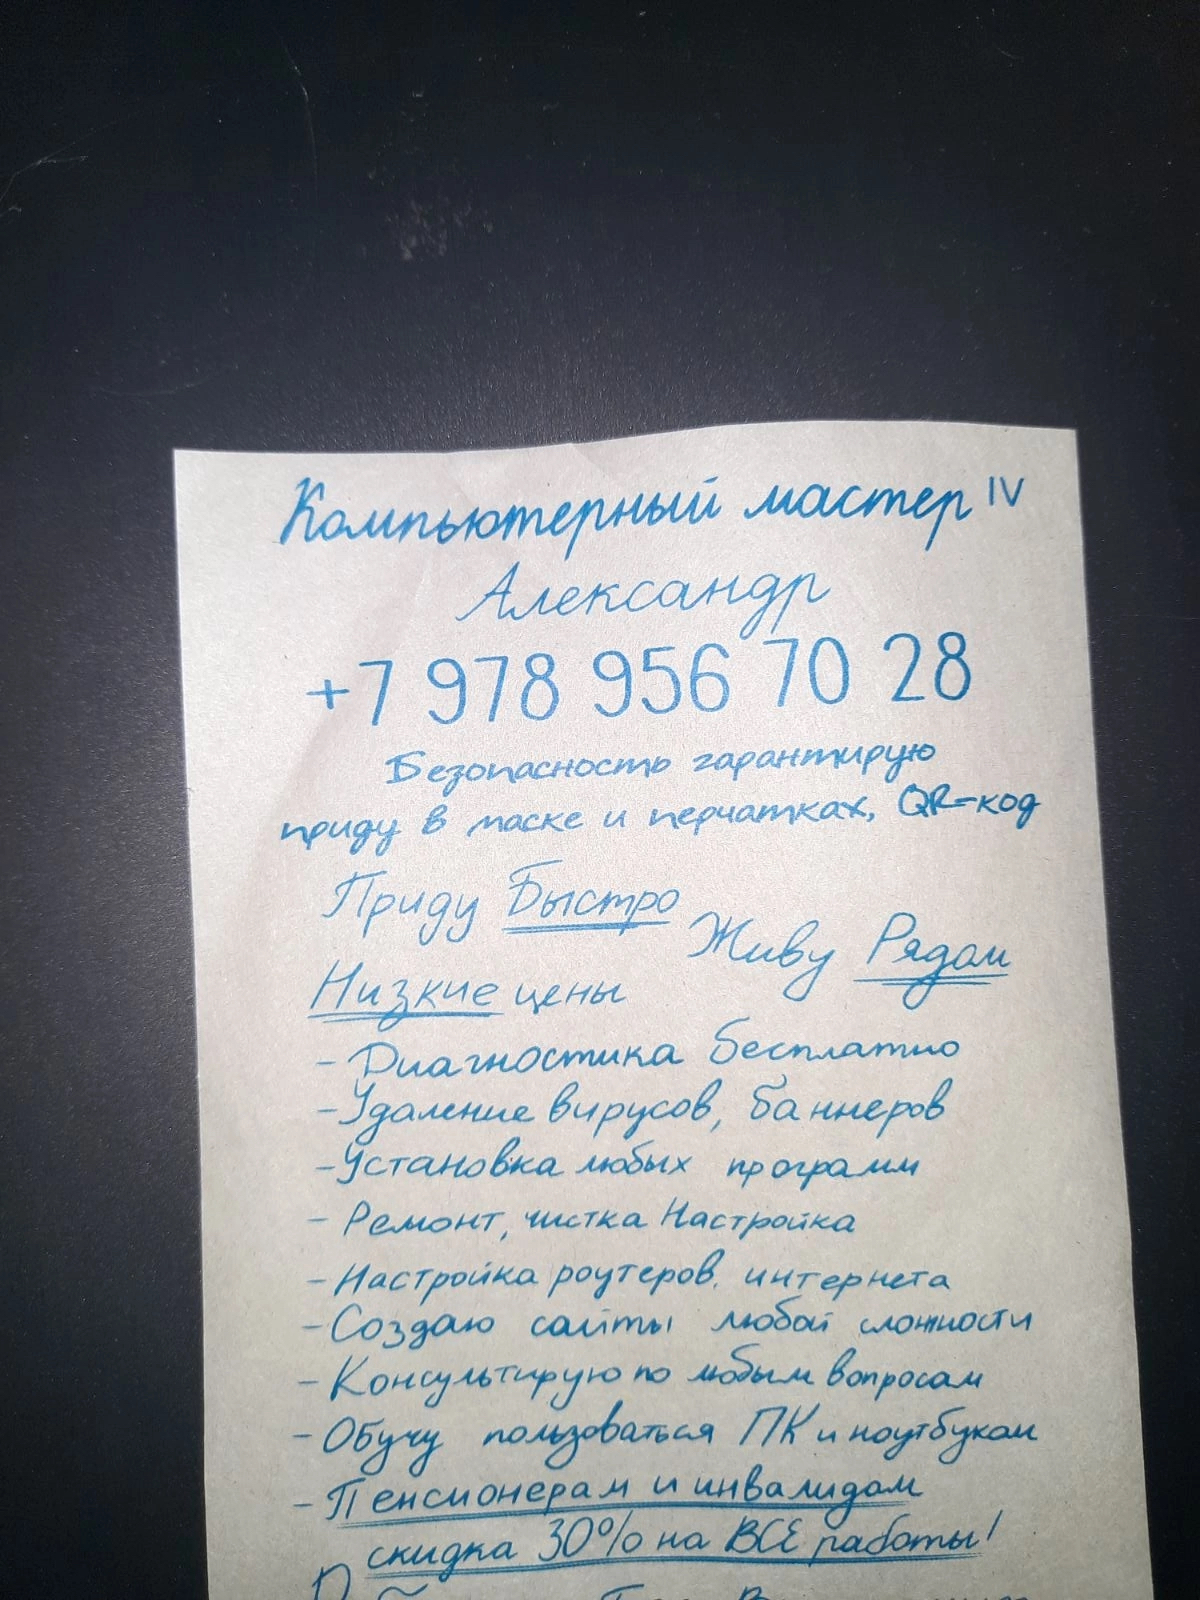 Компьютерный мастер IV
Александр
+7 978 956 70 28
Безопасность гарантирую
приду в маске и перчатках, QR-код
Приду Быстро
Живу Рядом
Низкие цены
- Диагностика бесплатно
- Удаление вирусов, баннеров
- Установка любых программ
- Ремонт, чистка Настройка
- Настройка роутеров. интернета
- Создаю сайты любой сложности
- Консультирую по любым вопросам
- Обучу пользоваться ПК и ноутбуком
- Пенсионерам и инвалидам
скидка 30% на ВСЕ работы!